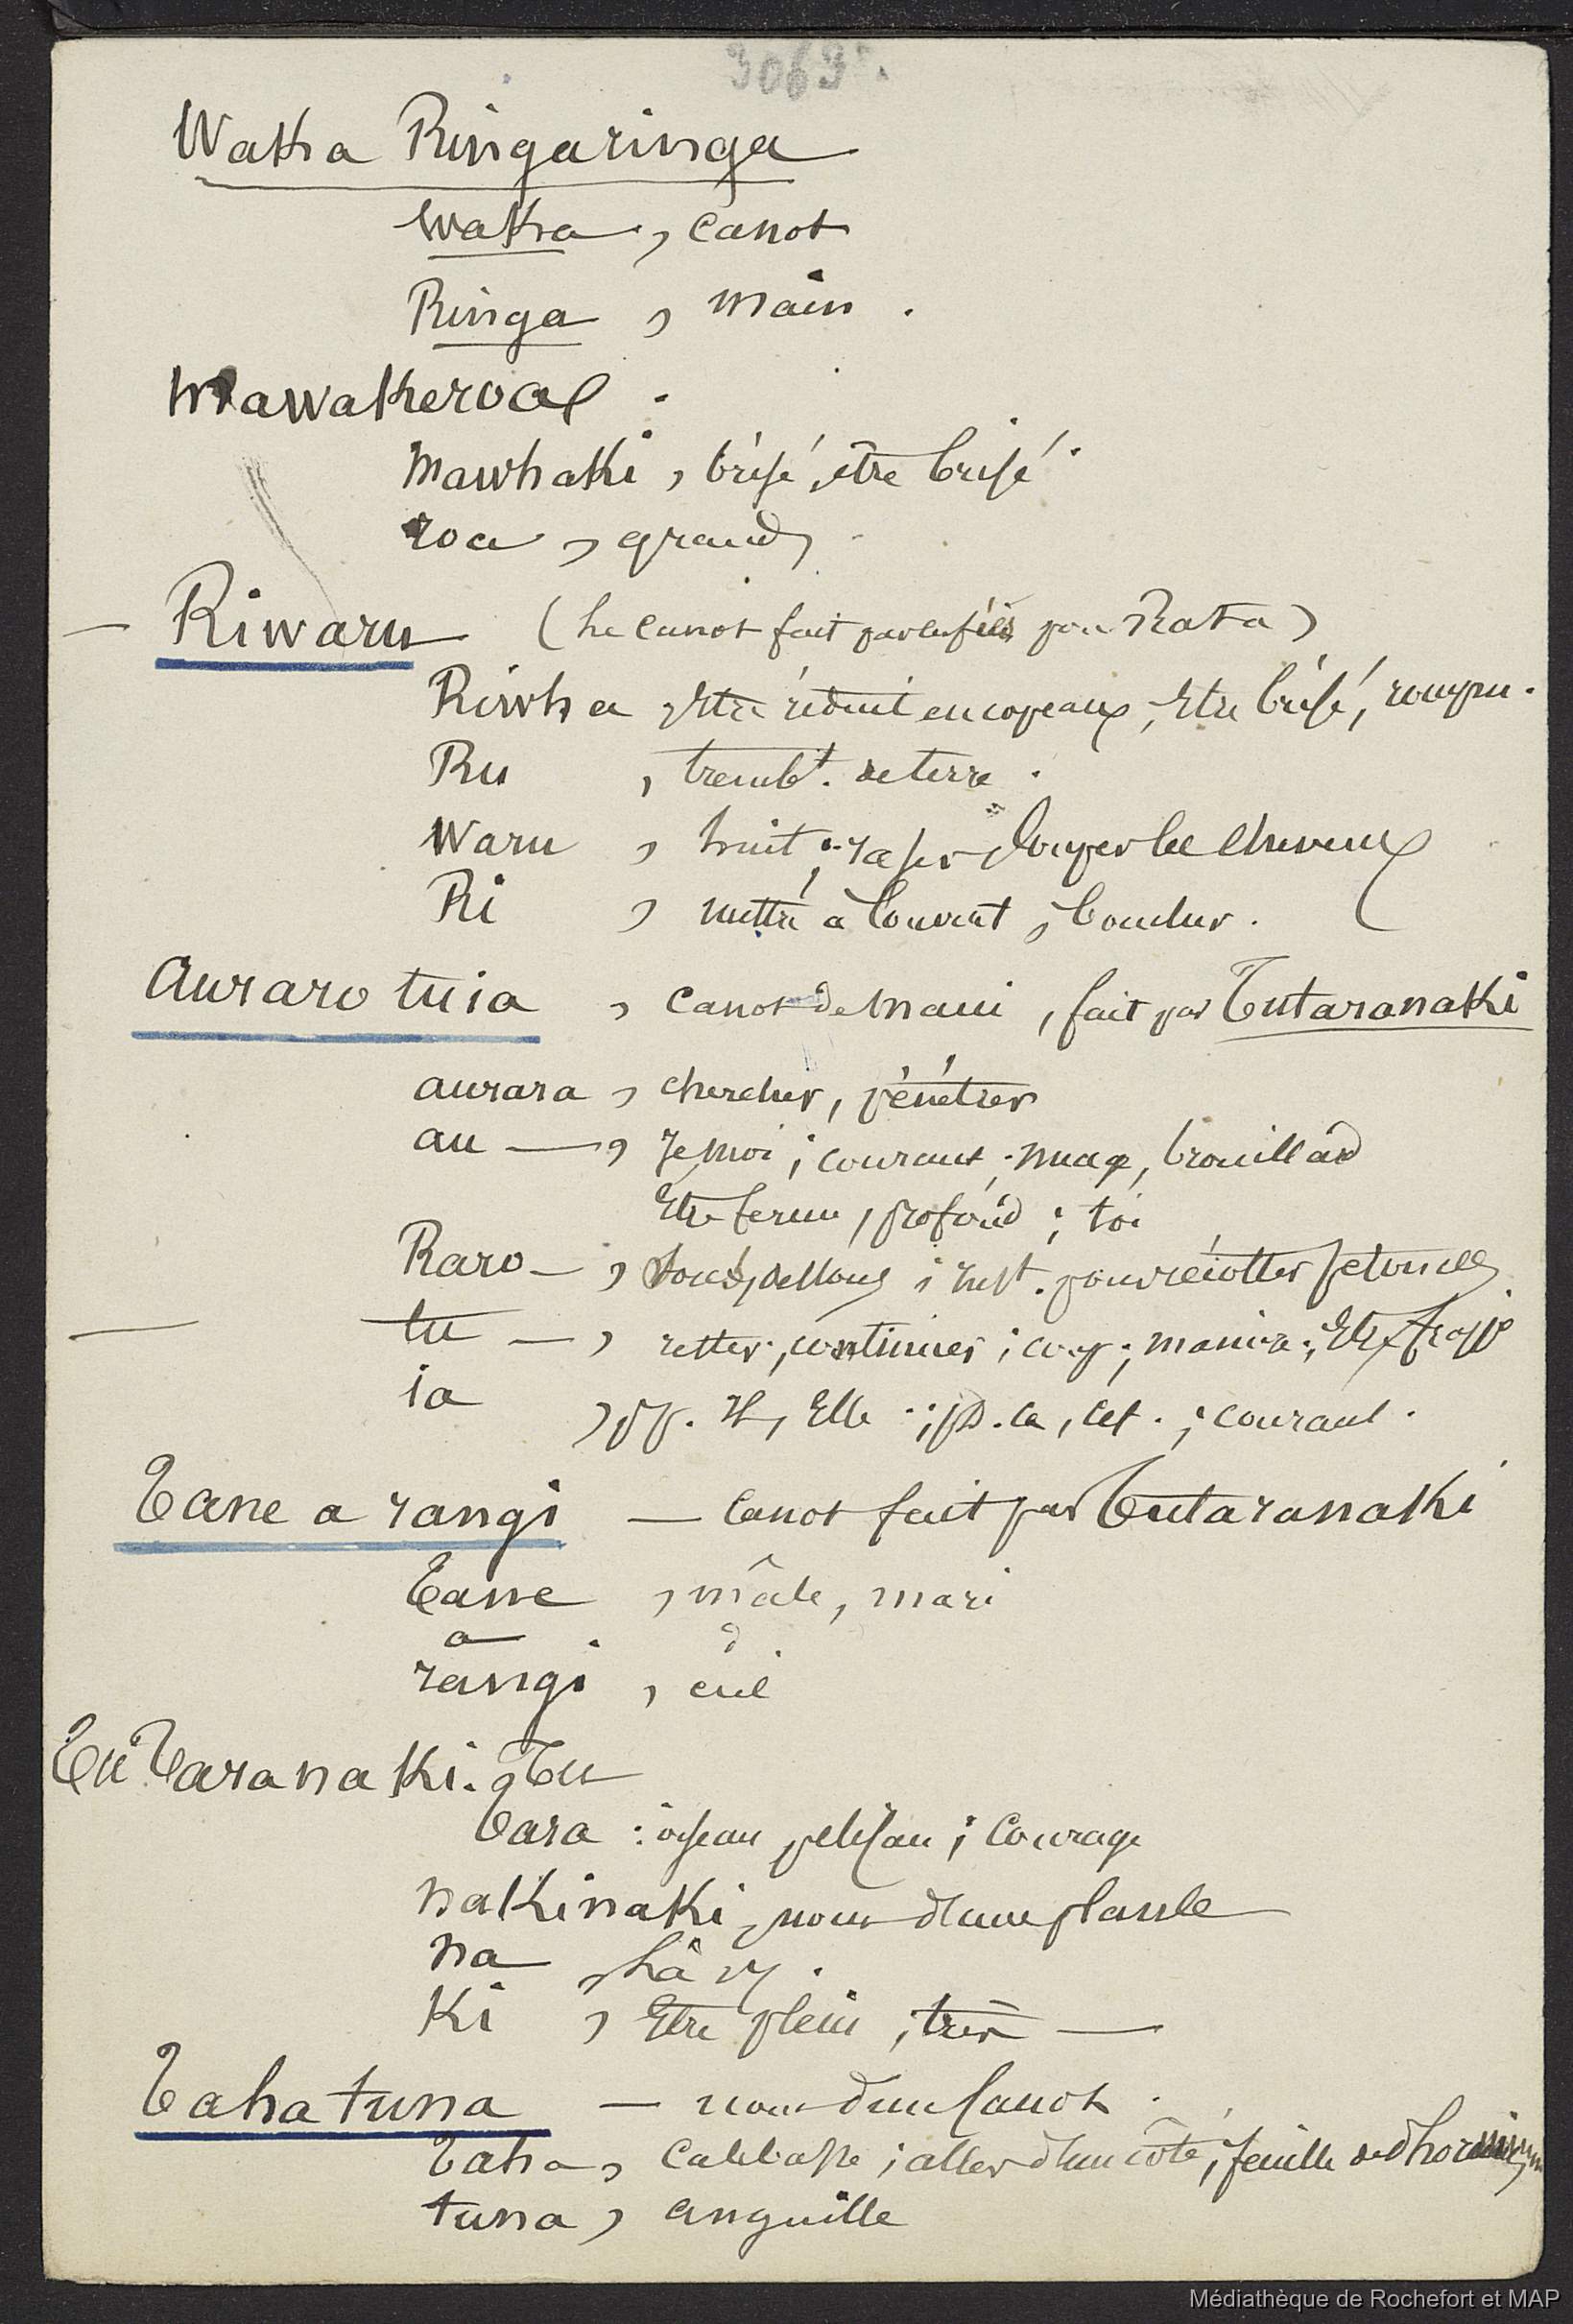 3063
Waka Ringaringa
Waka, canot
Ringa, main.
Mawakeroa.
Mawhaki, brisé, être brisé.
roa, grand
— Riwaru (Le canot fait par les fées pour Rata)
Riwha, Etre réduit en copeaux, Etre brisé, rompu.
Ru, trembt. de terre.
Waru, huit; raser, couper les cheveux
Ri, mettre à couvert, boucher.
Auraro tuia, canot de Maui, fait par Tutaranaki
aurara, chercher, pénétrer
au —, Je moi; courant; nuage, brouillard
Etre ferme, profond; toi
Raro —, sous, dessous;
— tu —, rester, continuer; manière; Etre frappé
ia, pp. Il, Elle; ce, cet.; courant.
Tane a rangi — Canot fait par Tutaranaki
Tane, mâle, mari
a
rangi, ciel
Tu Taranaki. Tu
Tara: oiseau, courage
nakinaki, nom d'une plante
na, là
Ki, Etre plein, très —
Tahatuna — nom d'un canot.
Taha, calebasse; aller d'un côté; feuille de
tuna, anguille
Médiathèque de Rochefort et MAP